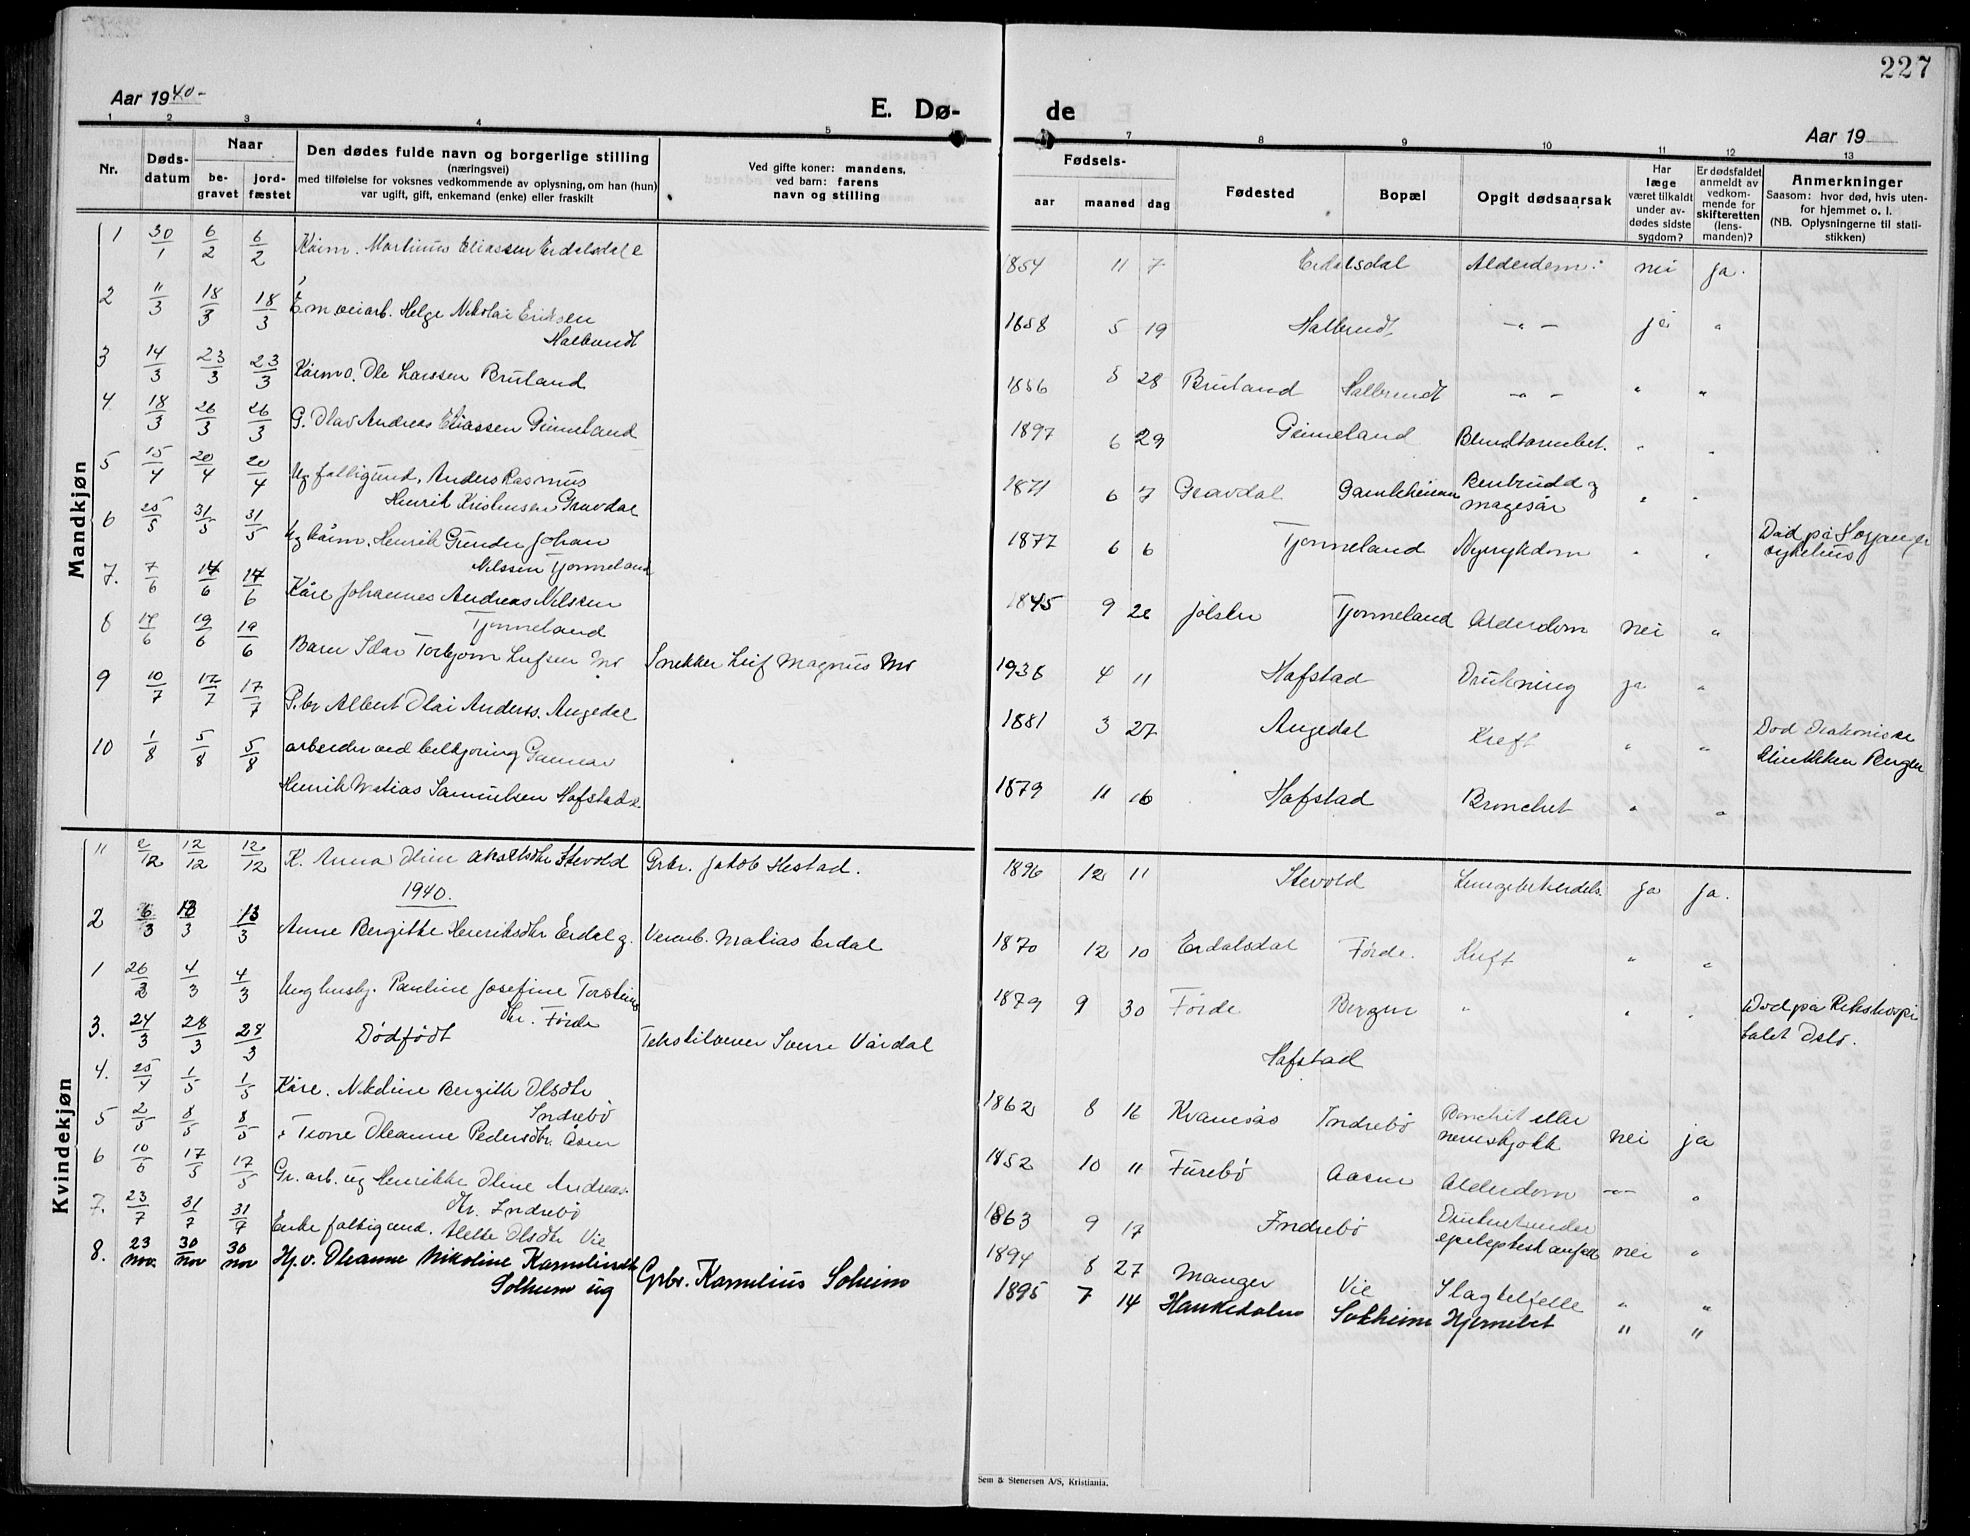 227
Aar 1940-
E. Dø-
de
Aar 19
1 2 3 4 5
7 8 9 10 11 12 13
Nr.
Døds-
datum
Naar
be-
gravet
jord-
fæstet
Den dødes fulde navn og borgerlige stilling
(næringsvei)
med tilføielse for voksnes vedkommende av oplysning, om han (hun)
var ugift, gift, enkemand (enke) eller fraskilt
Ved gifte koner: mandens,
ved barn: farens
navn og stilling
Fødsels-
aar maaned dag
Fødested
Bopæl
Opgit dødsaarsak
Har
læge
været tilkaldt
under av-
dødes sidste
sygdom?
Er dødsfaldet
anmeldt av
vedkom-
mende for
skifteretten
(lens-
manden)?
Anmerkninger
Saasom: hvor død, hvis uten-
for hjemmet o. l.
(NB. Oplysningerne til stati-
stikken)
Mandkjøn
1 30/1 6/2 6/2 Kårm. Martinus Eliassen Erdalsdal 1854 11 7 Erdalsdal Alderdom nei ja.
2 11/3 18/3 18/3 Em veiarb. Helge Nikolai Eriksen
Halbrendt 1858 5 19 Halbrendt - " - ja "
3 14/3 23/3 23/3 Kårm. Ole Larssen Bruland 1856 5 28 Bruland Halbrendt - " - " "
4 18/3 26/3 26/3 G. Olav Andreas Eliassen Geimeland 1897 6 29 Geimeland Blindtarmbet. " "
5 15/4 20/4 20/4 Ug fattigund. Anders Rasmus
Henrik Kristensen Gravdal 1871 6 7 Gravdal Gamleheimen Benbrudd og
magesår " "
6 25/5 31/5 31/5 Ug kårm. Henrik Gunder Johan
Nilssen Tjønneland 1877 6 6 Tjønneland Nyresykdom " " Død på
sykehus
7. 7/6 14/6 14/6 Kåre Johannes Andreas Nilssen
Tjønneland 1845 9 26 Jølster Tjønneland Alderdom nei "
8 14/6 19/6 19/6 Barn Idar Torbjørn Leifsen Mo Snekker Leif Magnus Mo 1938 4 11 Hafstad Drukning ja "
9 10/7 17/7 17/7 G.br Albert Olai Anders. Angedal 1881 3 27 Angedal Kreft " " Død Diakonisse
klinikken Bergen
10 1/8 5/8 5/8 arbeider ved Gunnar
Henrik Matias Samuelsen Hafstad 1879 11 16 Hafstad Bronchet " "
Kvindekjøn
11 2/12 12/12 12/12 K. Anna Oline Stevold Grbr. Jakob Hestad. 1896 12 11 Stevold ja ja.
1940.
2 6/3 13/3 13/3 Anne Bergitte Henriksdtr Erdal g. Veiarb. Matias Erdal 1870 12 10 Erdalsdal Førde. Kreft " "
1 26/2 4/3 4/3 Ung husbj. Pauline Josefine Torsteins
dtr. Førde 1879 9 30 Førde Bergen " " " Død på Rikshospi
talet Oslo.
3. 24/3 28/3 28/3 Dødfødt Tekstilvever Sverre Vårdal Hafstad
4. 25/4 1/5 1/5 Kåre. Nikoline Bergitte Olsdtr
Indrebø 1862 8 16 Kvamsås Indrebø Bronchit eller
nerveskjokk nei ja
5 2/5 8/5 8/5 Trone Oleanne Pedersdtr. Åsen 1852 10 11 Furebø Aasen Alderdom - " - "
6 10/5 17/5 17/5 Gr. arb. ug Henrikke Oline Andreas-
dtr. Indrebø 1863 9 17 Indrebø Druknet under
epileptisk anfall nei "
7. 23/7 31/7 31/7 Enke fattigund. Mette Olsdtr Vie 1894 8 27 Manger Vie Slagtilfelle " "
8. 23 nov. 30 nov 30 nov Hj.v. Oleanne Nikoline Kornelisdtr
Solheim ug Grbr. Kornelius Solheim 1895 7 14 Hankedalen Solheim Hjernebet " "
Sem & Stenersen A/S, Kristiania.